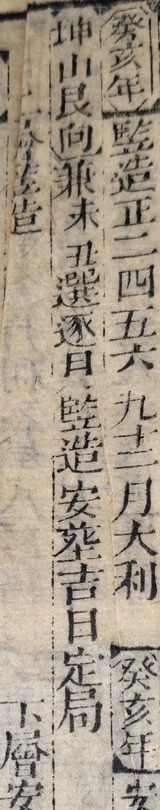 癸亥年 監造正二四五六九十二月大利 癸亥年 安
坤山艮向兼未丑選逐日監造安葬吉日定局
下層安